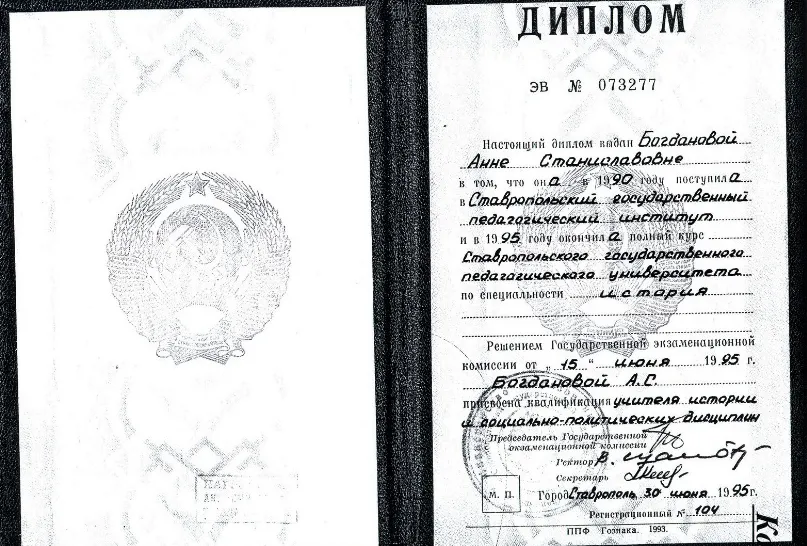 ДИПЛОМ
ЭВ № 073277
Настоящий диплом выдан Богдановой
Анне Станиславовне
в том, что она в 1990 году поступила
в Ставропольский государственный
педагогический институт
и в 1995 году окончила полный курс
Ставропольского государственного
педагогического университета
по специальности история
Решением Государственной экзаменационной
комиссии от „15“ июня 1995 г.
Богдановой А.С.
присвоена квалификация учителя истории
и социально-политических дисциплин
Председатель Государственной
экзаменационной комиссии
Ректор
Секретарь
М. П.
Город Ставрополь 30 июня 1995 г.
Регистрационный № 104
ППФ Гознака. 1993.